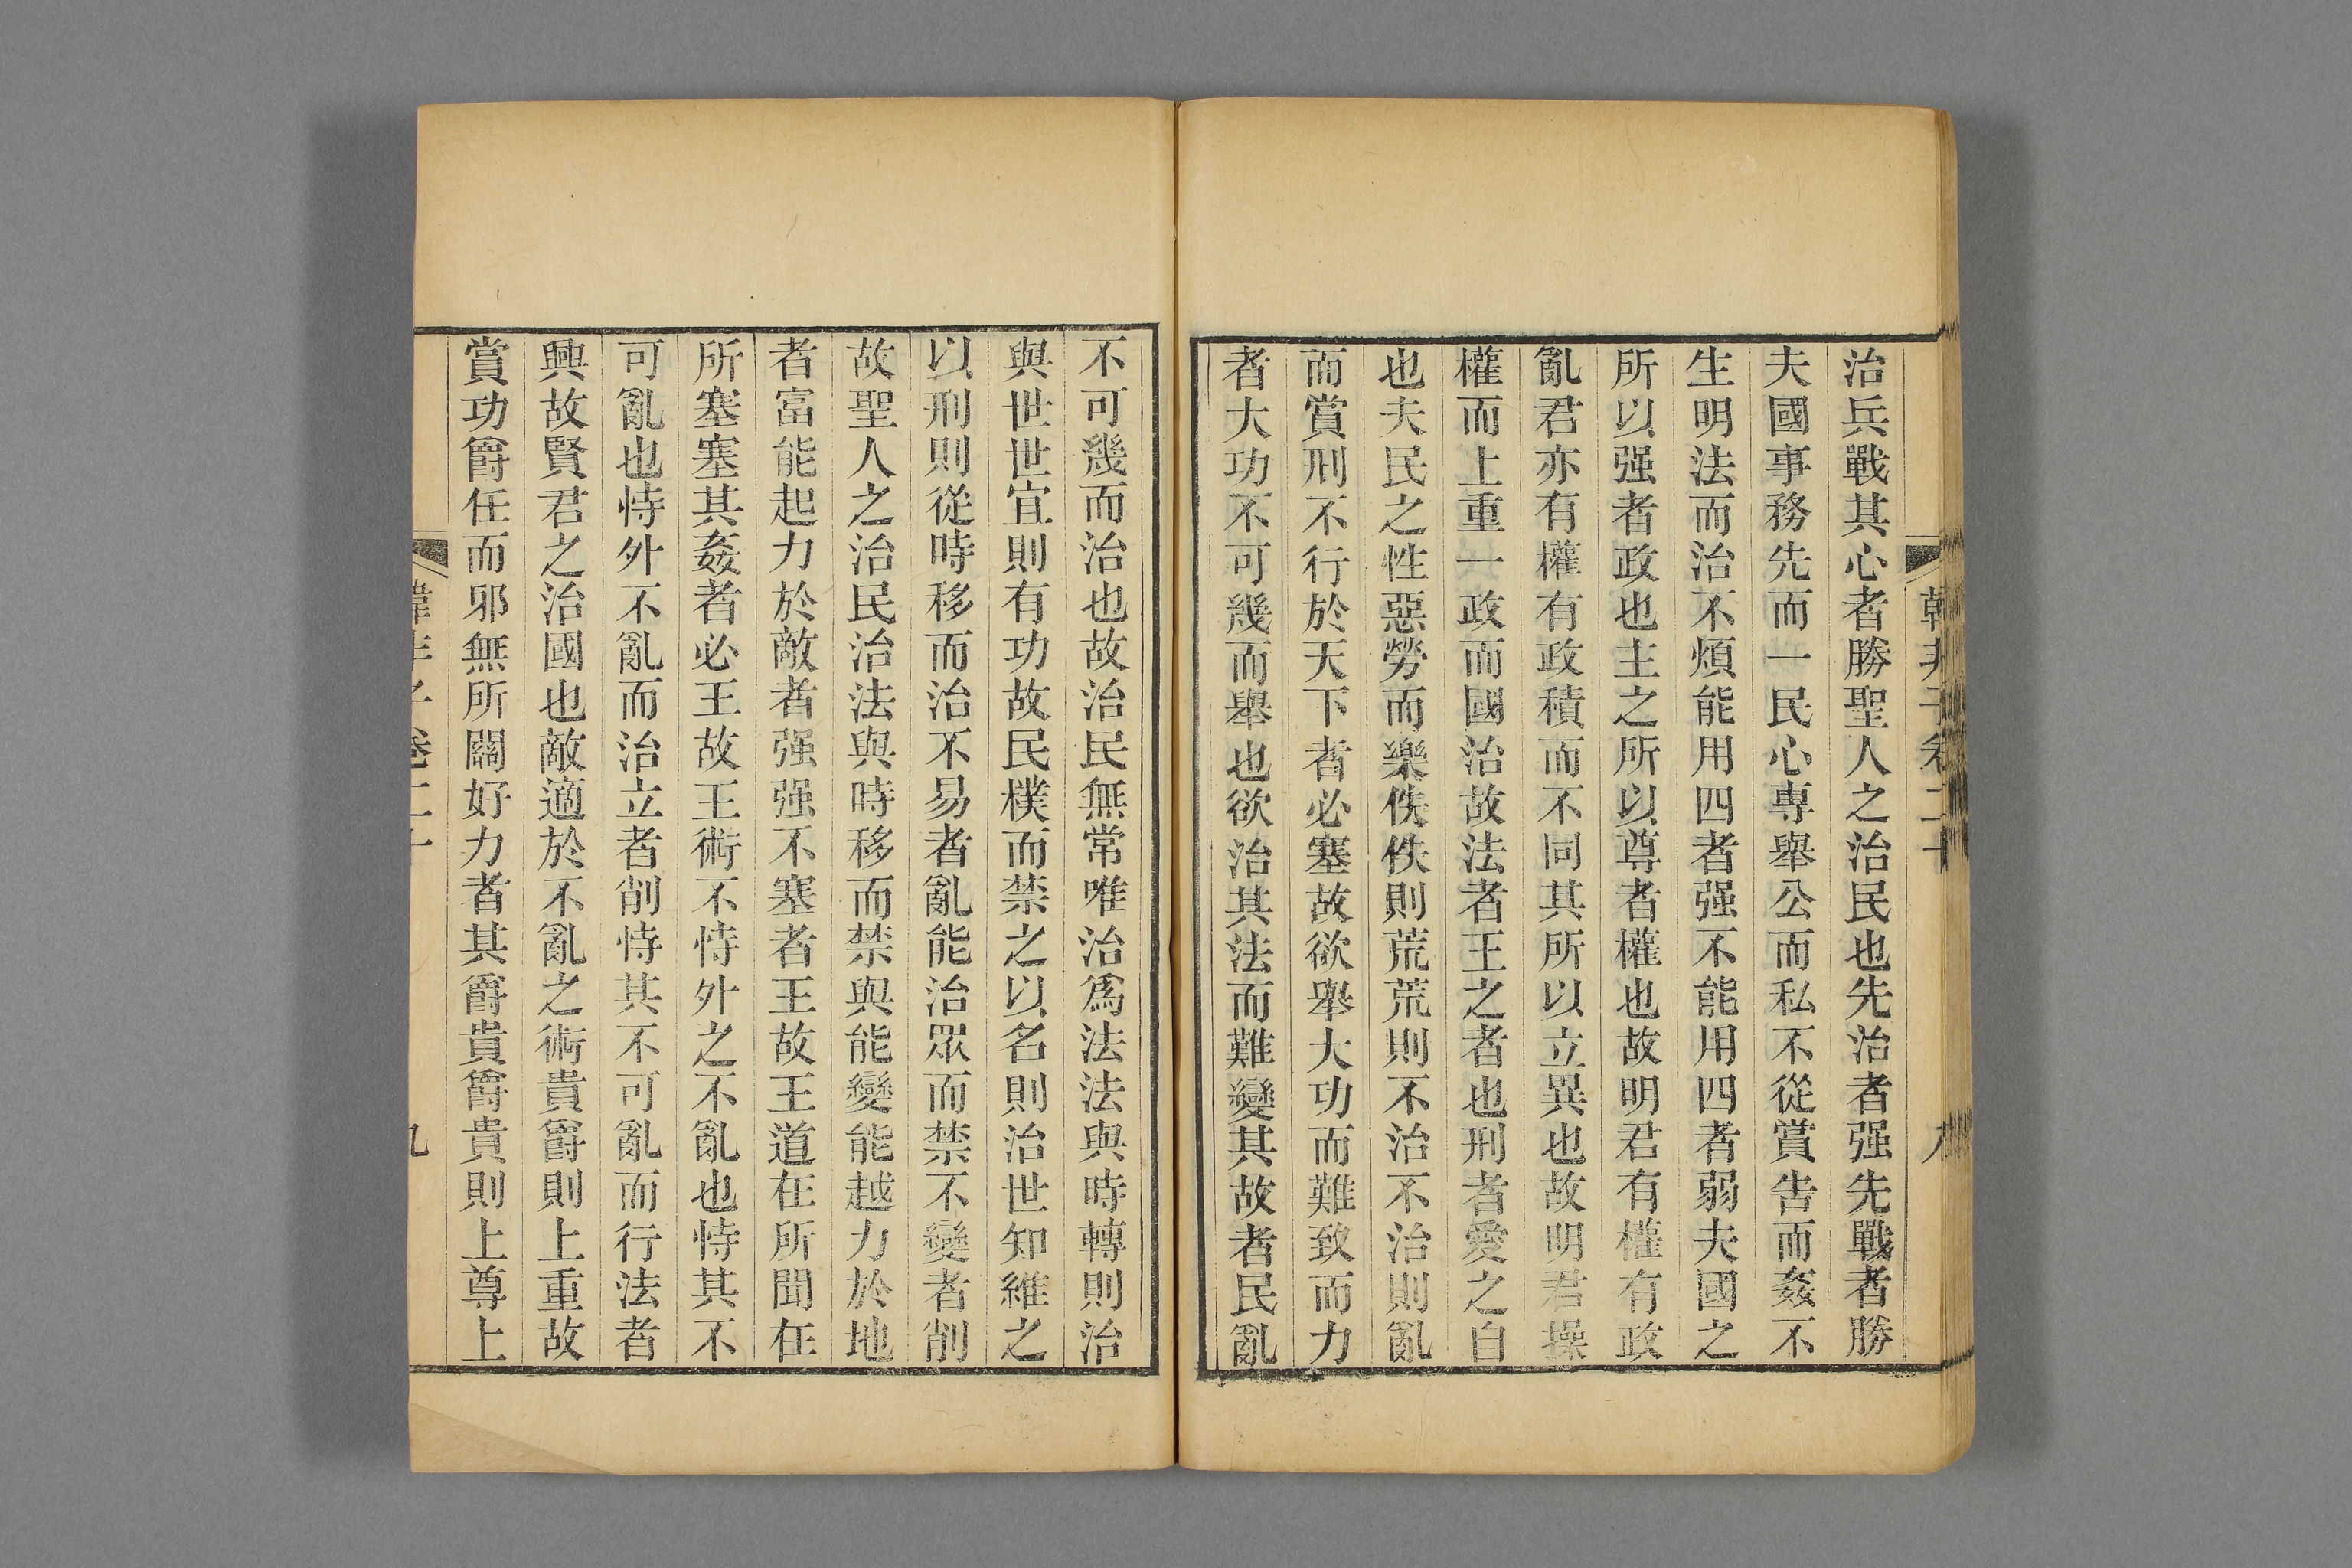 治兵戰其心者勝聖人之治民也先治者强先戰者勝
夫國事務先而一民心專舉公而私不從賞告而姦不
生明法而治不煩能用四者强不能用四者弱夫國之
所以强者政也主之所以尊者權也故明君有權有政
亂君亦有權有政積而不同其所以立異也故明君操
權而上重一政而國治故法者王之者也刑者愛之自
也夫民之性惡勞而樂佚佚則荒荒則不治不治則亂
而賞刑不行於天下者必塞故欲舉大功而難致而力
者大功不可幾而舉也欲治其法而難變其故者民亂
不可幾而治也故治民無常唯治爲法法與時轉則治
與世世宜則有功故民樸而禁之以名則治世知維之
以刑則從時移而治不易者亂能治眾而禁不變者削
故聖人之治民治法與時移而禁與能變能越力於地
者富能起力於敵者强强不塞者王故王道在所聞在
所塞塞其姦者必王故王術不恃外之不亂也恃其不
可亂也恃外不亂而治立者削恃其不可亂而行法者
興故賢君之治國也敵適於不亂之術貴爵則上重故
賞功爵任而邪無所關好力者其爵貴爵貴則上尊上
韓非子卷二十
九